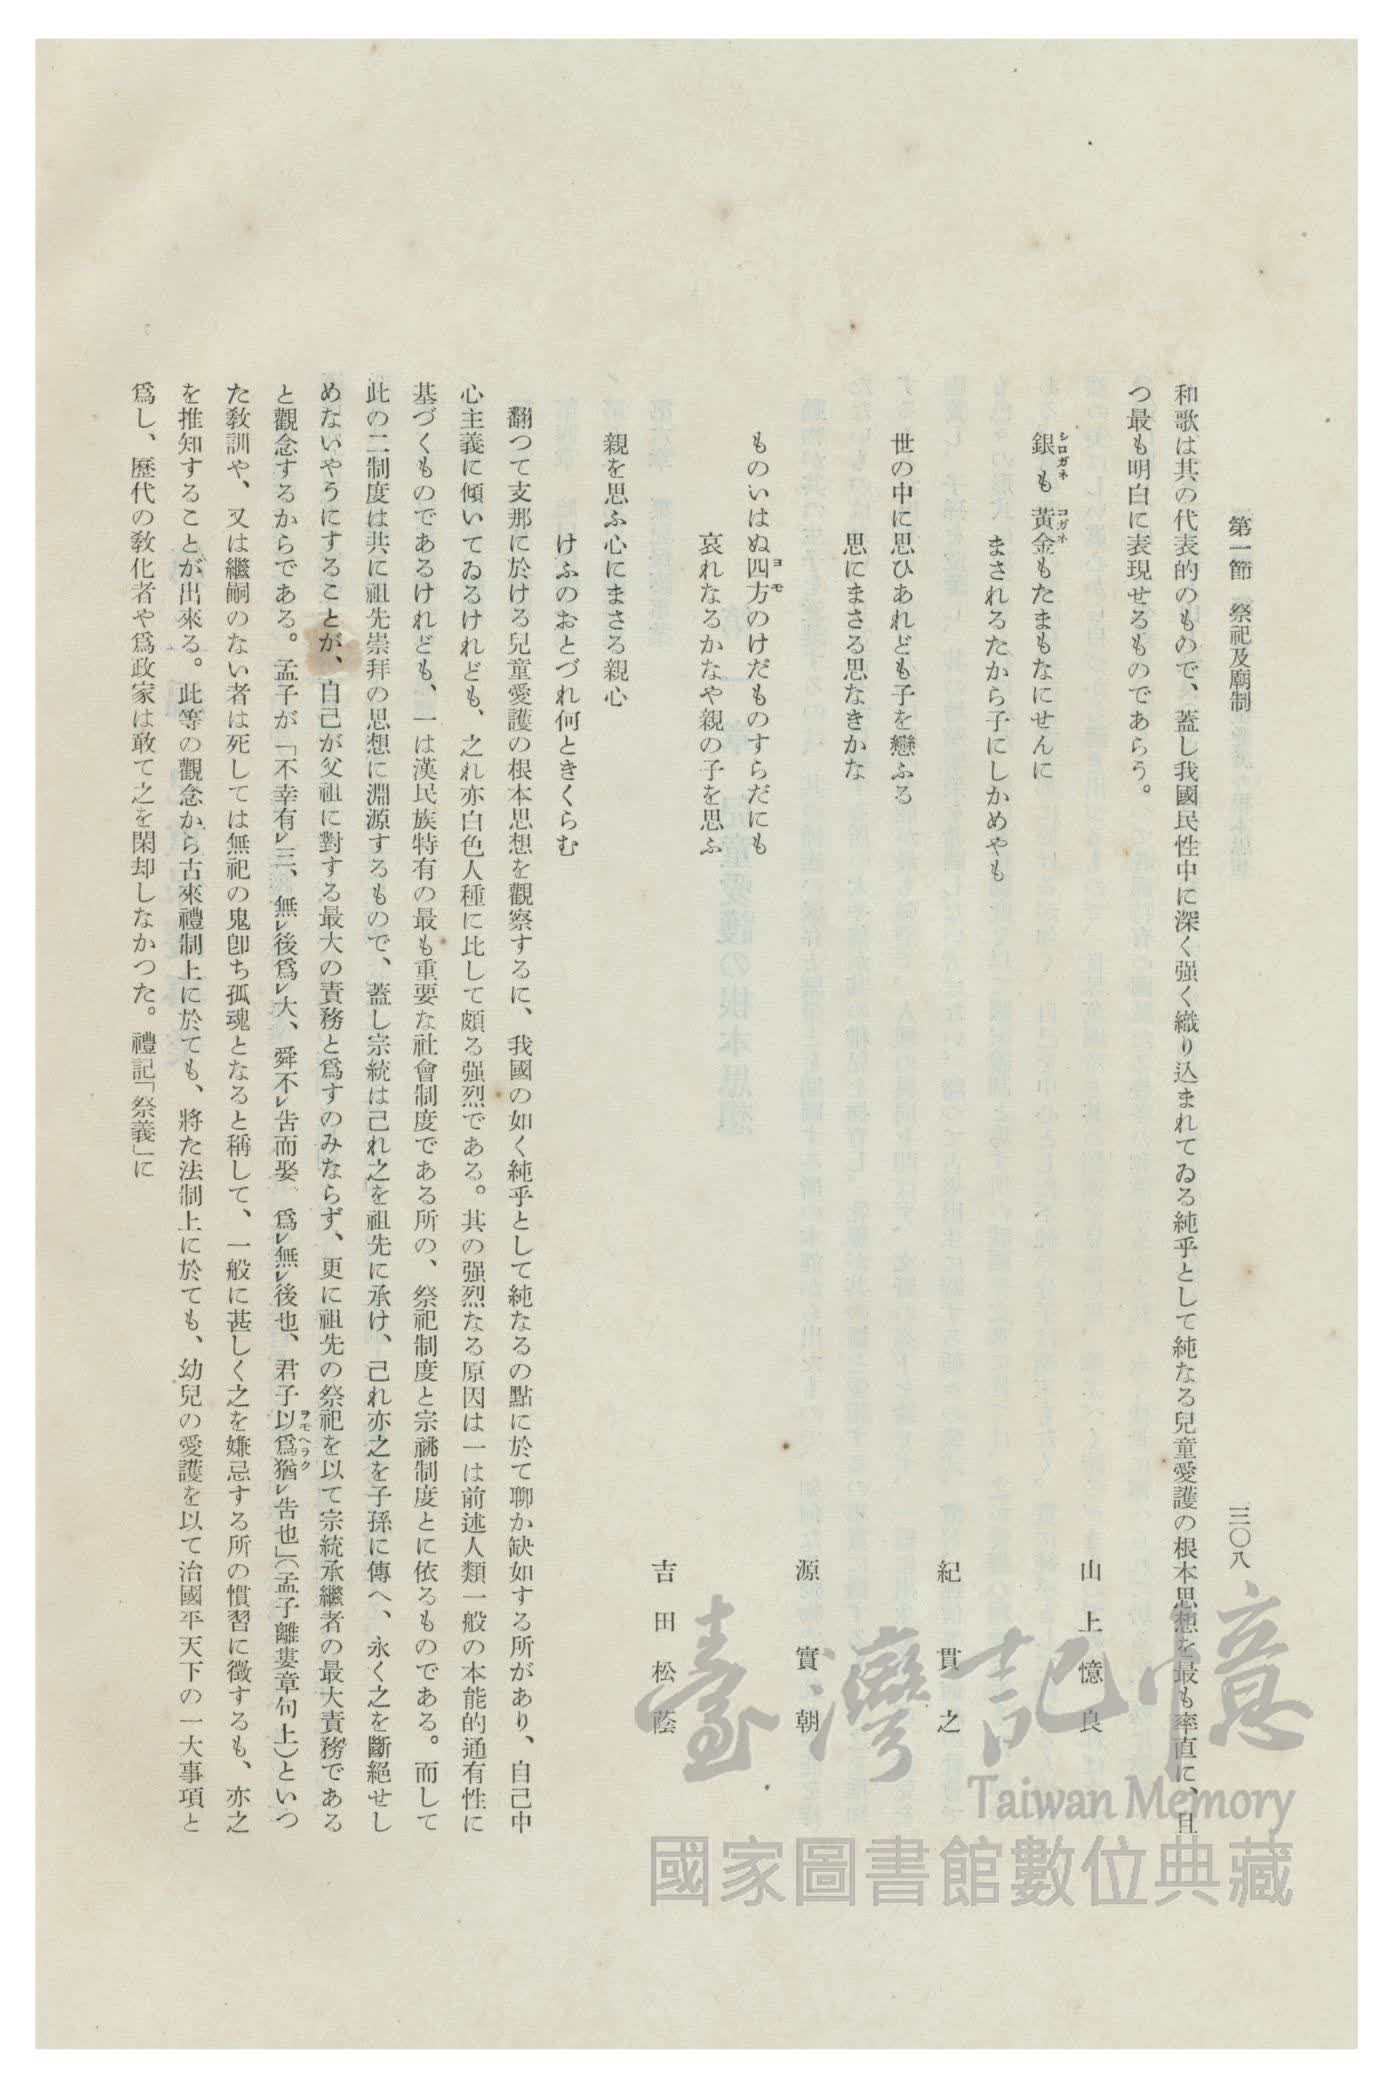 第一節　祭祀及廟制
三〇八
和歌は其の代表的のもので、蓋し我國民性中に深く强く織り込まれてゐる純乎として純なる兒童愛護の根本思想を最も率直に、且
つ最も明白に表現せるものであらう。
山上憶良
銀も黃金もたまもなにせんに
シロガネ　コガネ
まされるたから子にしかめやも
紀貫之
世の中に思ひあれども子を戀ふる
思にまさる思なきかな
源實朝
ものいはぬ四方のけだものすらだにも
ヨモ
哀れなるかなや親の子を思ふ
吉田松蔭
親を思ふ心にまさる親心
けふのおとづれ何ときくらむ
翻つて支那に於ける兒童愛護の根本思想を觀察するに、我國の如く純乎として純なるの點に於て聊か缺如する所があり、自己中
心主義に傾いてゐるけれども、之れ亦白色人種に比して頗る强烈である。其の强烈なる原因は一は前述人類一般の本能的通有性に
基づくものであるけれども、一は漢民族特有の最も重要な社會制度である所の、祭祀制度と宗祧制度とに依るものである。而して
此の二制度は共に祖先崇拜の思想に淵源するもので、蓋し宗統は己れ之を祖先に承け、己れ亦之を子孫に傳へ、永く之を斷絕せし
めないやうにすることが、自己が父祖に對する最大の責務と爲すのみならず、更に祖先の祭祀を以て宗統承繼者の最大責務である
と觀念するからである。孟子が「不幸有レ三、無レ後爲レ大、舜不レ告而娶　爲レ無レ後也、君子以爲猶レ告也」（孟子離婁章句上）といつ
ヲモヘラク
た敎訓や、又は繼嗣のない者は死しては無祀の鬼卽ち孤魂となると稱して、一般に甚しく之を嫌忌する所の慣習に徵するも、亦之
を推知することが出來る。此等の觀念から古來禮制上に於ても、將た法制上に於ても、幼兒の愛護を以て治國平天下の一大事項と
爲し、歷代の敎化者や爲政家は敢て之を閑却しなかつた。禮記「祭義」に
臺灣記憶
Taiwan Memory
國家圖書館數位典藏